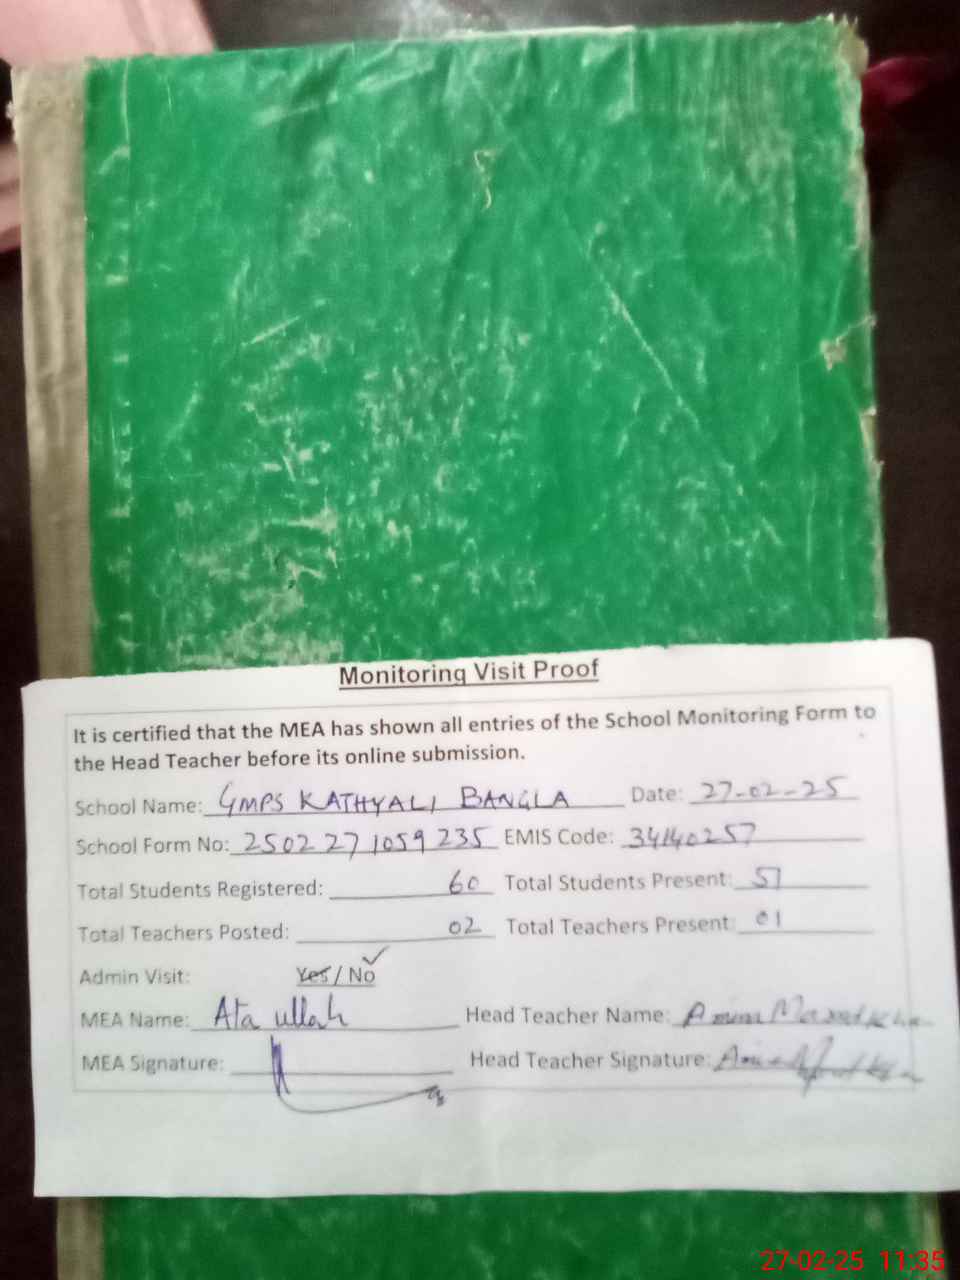 Monitoring Visit Proof
It is certified that the MEA has shown all entries of the School Monitoring Form to
the Head Teacher before its online submission.
School Name: GMPS KATHYALI BANGLA Date: 27-02-25
School Form No: 2502 27 1059 235 EMIS Code: 34140257
Total Students Registered: 60 Total Students Present: 51
Total Teachers Posted: 02 Total Teachers Present: 01
Admin Visit: Yes / No
MEA Name: Ata ullah Head Teacher Name:
MEA Signature: Head Teacher Signature:
27-02-25 11:35